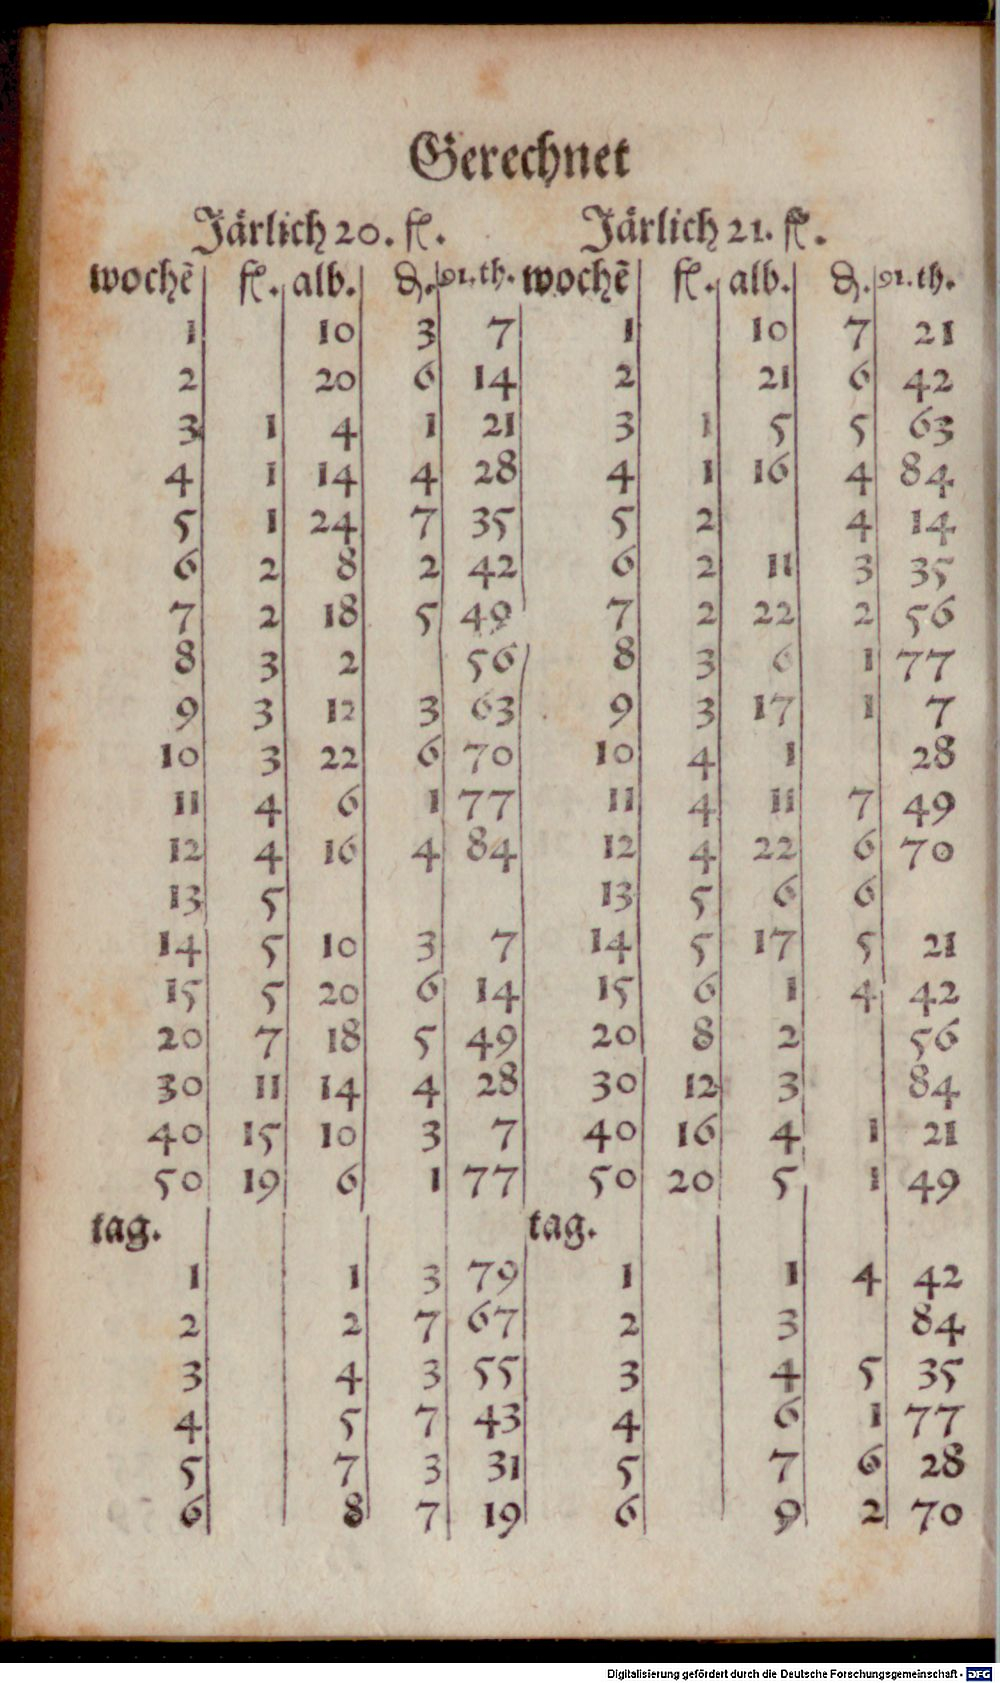 Gerechnet
Järlich 20. fl. Järlich 21. fl.
wochẽ fl. alb. ₰. 91.th. wochẽ fl. alb. ₰. 91.th.
1 10 3 7 1 10 7 21
2 20 6 14 2 21 6 42
3 1 4 1 21 3 1 5 5 63
4 1 14 4 28 4 1 16 4 84
5 1 24 7 35 5 2 4 14
6 2 8 2 42 6 2 11 3 35
7 2 18 5 49 7 2 22 2 56
8 3 2 56 8 3 6 1 77
9 3 12 3 63 9 3 17 1 7
10 3 22 6 70 10 4 1 28
11 4 6 1 77 11 4 11 7 49
12 4 16 4 84 12 4 22 6 70
13 5 13 5 6 6
14 5 10 3 7 14 5 17 5 21
15 5 20 6 14 15 6 1 4 42
20 7 18 5 49 20 8 2 56
30 11 14 4 28 30 12 3 84
40 15 10 3 7 40 16 4 1 21
50 19 6 1 77 50 20 5 1 49
tag. tag.
1 1 3 79 1 1 4 42
2 2 7 67 2 3 84
3 4 3 55 3 4 5 35
4 5 7 43 4 6 1 77
5 7 3 31 5 7 6 28
6 8 7 19 6 9 2 70
Digitalisierung gefördert durch die Deutsche Forschungsgemeinschaft - DFG